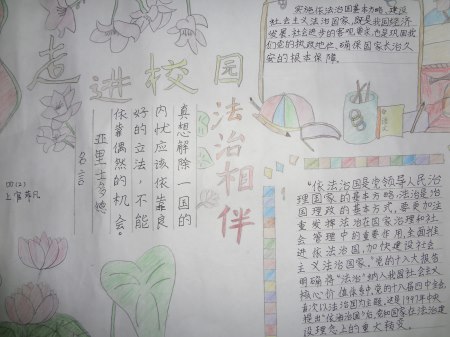 走进校园
法治相伴
真想解除一国的
内忧应该依靠良
好的立法，不能
依靠偶然的机会。
亚里士多德
上官苒凡
实施依法治国基本方略、建设
社会主义法治国家，既是我国经济
发展、社会进步的客观要求，也是巩固我
们党的执政地位、确保国家长治久
安的根本保障。
"依法治国是党领导人民治
理国家的基本方略，法治是治
国理政的基本方式，要更加注
重发挥法治在国家治理和社
会管理中的重要作用，全面推
进依法治国，加快建设社会
主义法治国家。"党的十八大报告
明确将"法治"纳入我国社会主义
核心价值体系中，党的十八届四中全会
首次以法治国为主题，这是1997年中央
提出"依法治国"后，党和国家在法治建
设理念上的重大转变。